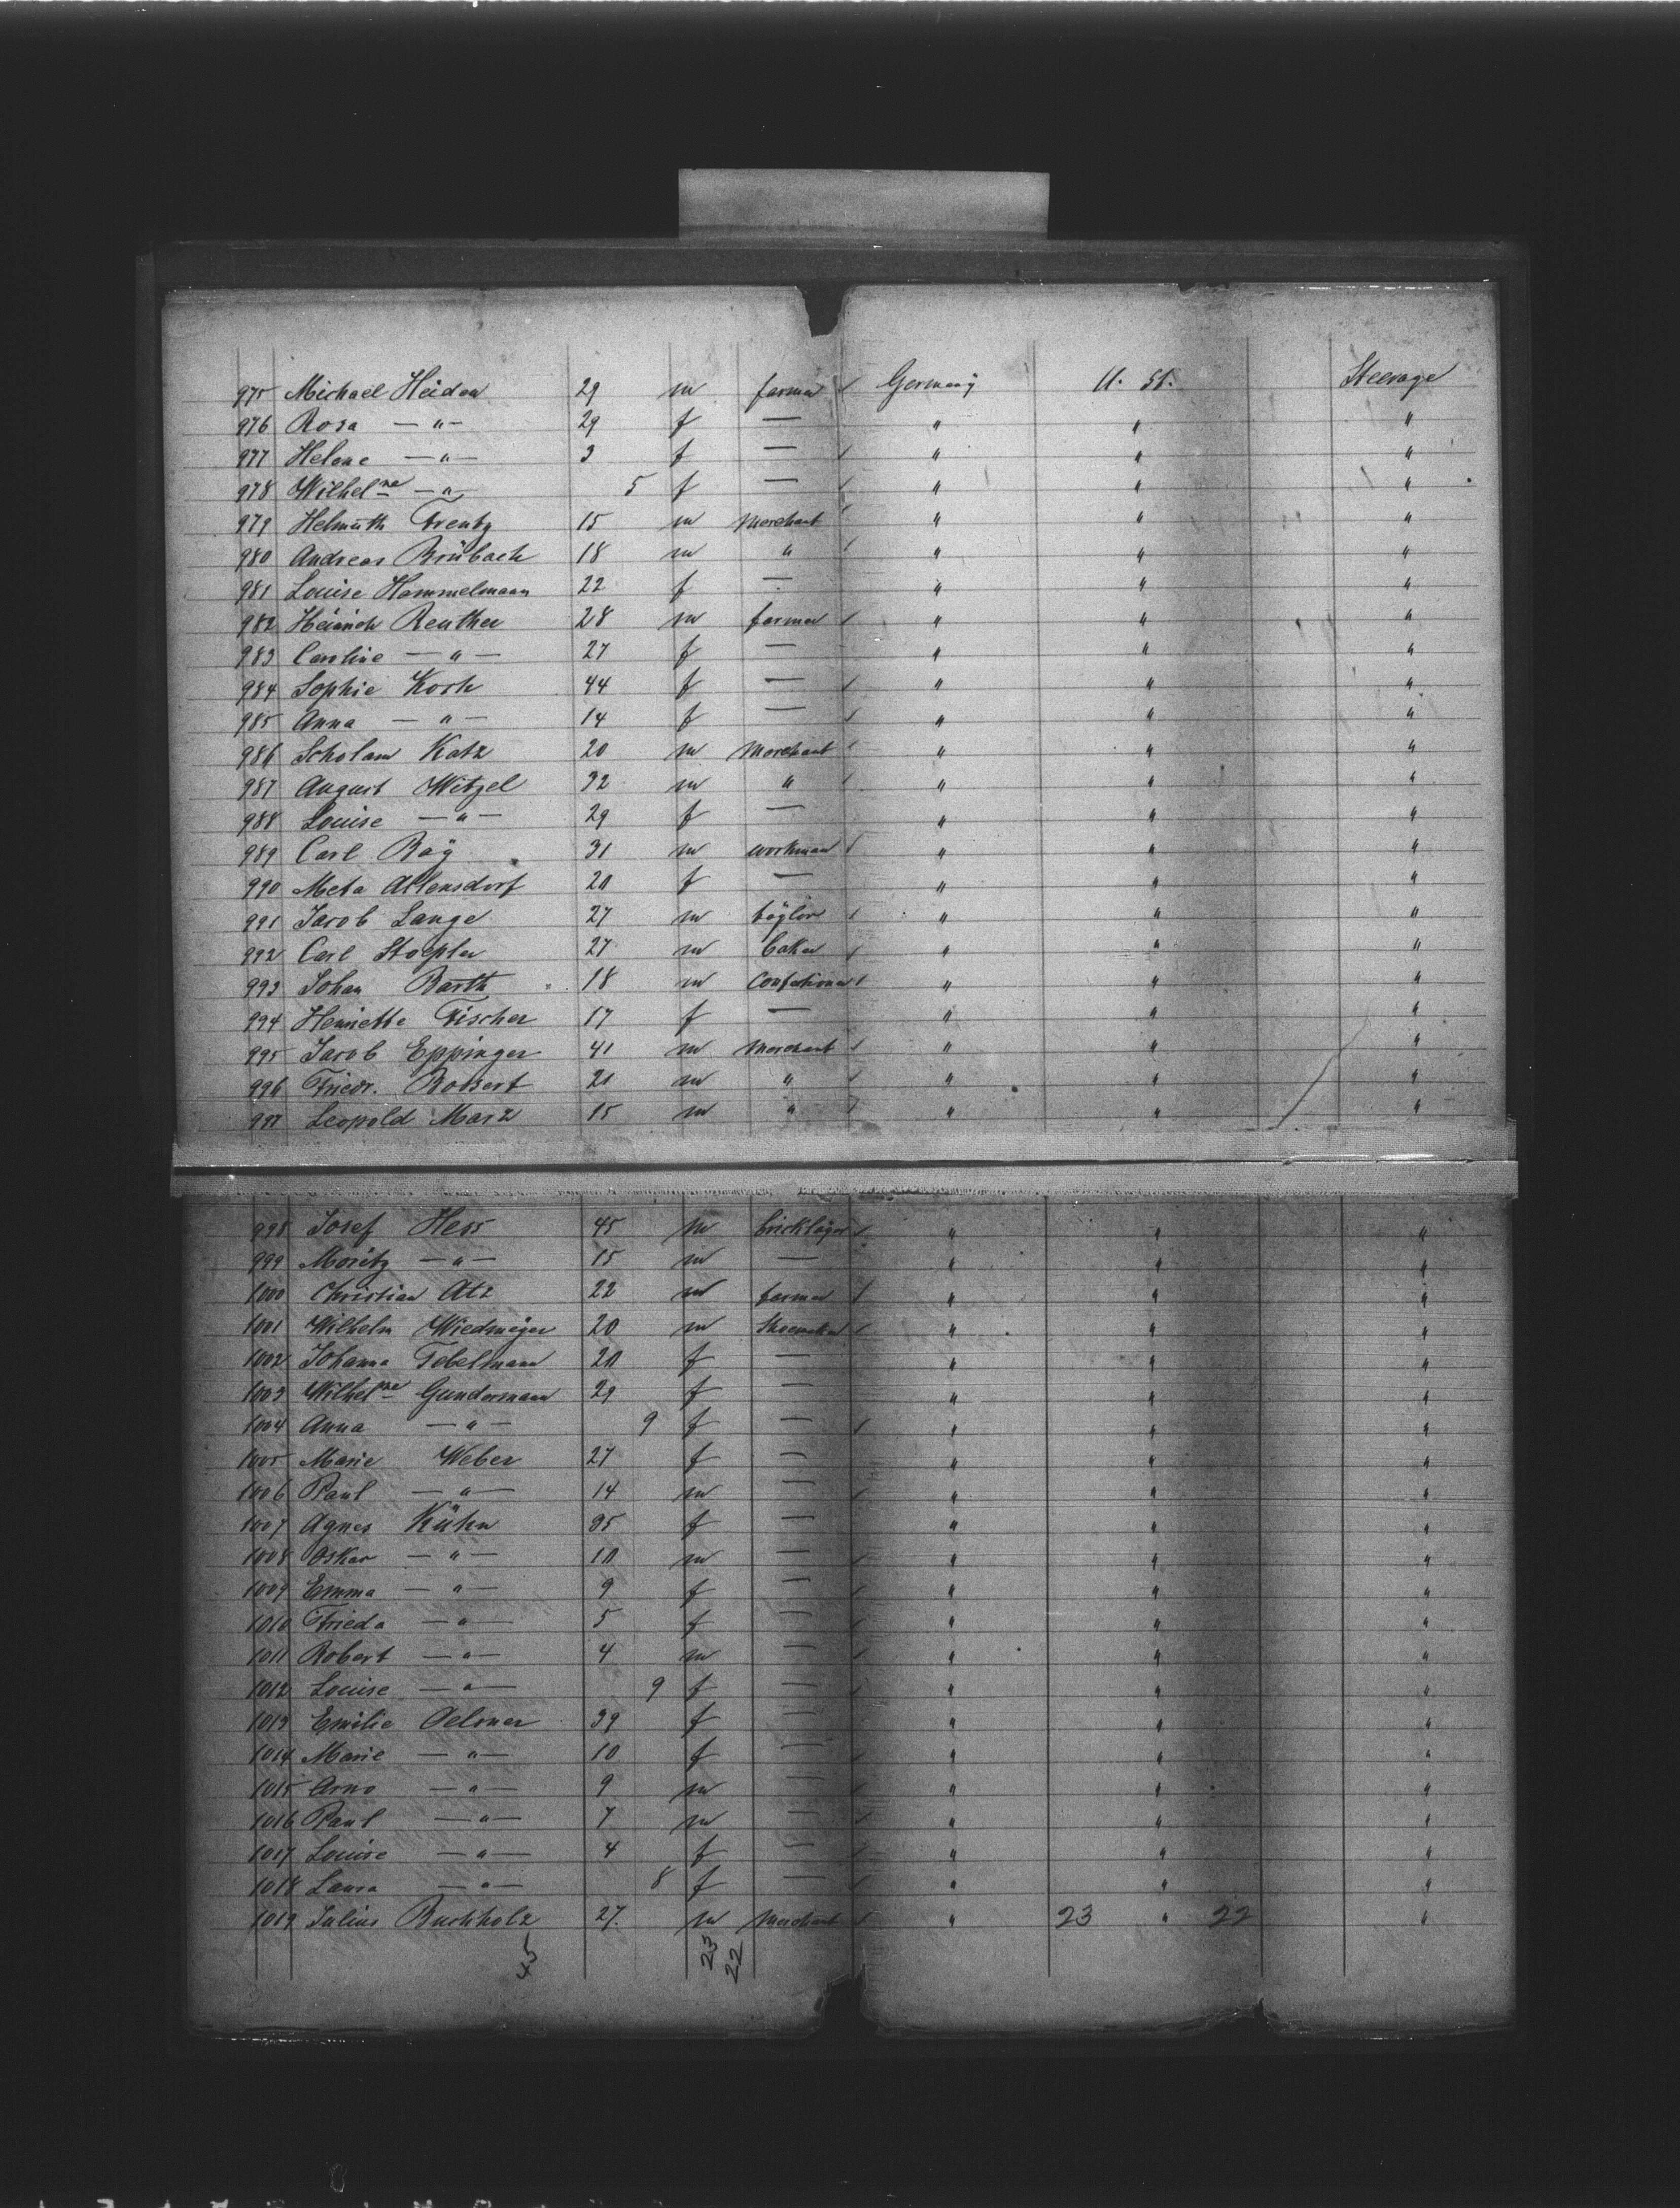 975 Michael Heiden 29 m farmer Germany U. St. Steerage
976 Rosa — " — 29 f — " " "
977 Helene — " — 3 f — " " "
978 Wilhelne — " — 5 f — " " "
979 Helmuth Frentz 15 m Merchant " " "
980 Andreas Brübach 18 m " " " "
981 Louise Hammelmann 22 f — " " "
982 Heinrich Reuther 28 m farmer " " "
983 Caroline — " — 27 f — " " "
984 Sophie Koch 44 f — " " "
985 Anna — " — 14 f — " " "
986 Scholam Katz 20 m Merchant " " "
987 August Witzel 32 m " " " "
988 Louise — " — 29 f — " " "
989 Carl Baÿ 31 m workman " " "
990 Meta Allensdorf 20 f — " " "
991 Jacob Lange 27 m taÿlor " " "
992 Carl Stoepler 27 m baker " " "
993 Johan Barth 18 m Confectioner " " "
994 Henriette Fischer 17 f — " " "
995 Jacob Eppinger 41 m Merchant " " "
996 Friedr. Bossert 21 m " " " "
997 Leopold Marx 15 m " " " "
998 Josef Hess 45 m bricklaÿer " " "
999 Moritz — " — 15 m — " " "
1000 Christian Atz 22 m farmer " " "
1001 Wilhelm Wiedmeÿer 20 m Shoemaker " " "
1002 Johanna Tebelmann 20 f — " " "
1003 Wilhelne Gundermann 29 f — " " "
1004 Anna — " — 9 f — " " "
1005 Marie Weber 27 f — " " "
1006 Paul — " — 14 m — " " "
1007 Agnes Kühn 35 f — " " "
1008 Oskar — " — 10 m — " " "
1009 Emma — " — 9 f — " " "
1010 Frieda — " — 5 f — " " "
1011 Robert — " — 4 m — " " "
1012 Louise — " — 9 f — " " "
1013 Emilie Oelsner 39 f — " " "
1014 Marie — " — 10 f — " " "
1015 Arno — " — 9 m — " " "
1016 Paul — " — 7 m — " " "
1017 Louise — " — 4 f — " " "
1018 Laura — " — 8 f — " " "
1019 Julius Buchholz 27. m Merchant " 23 " 22 "
45 23 22